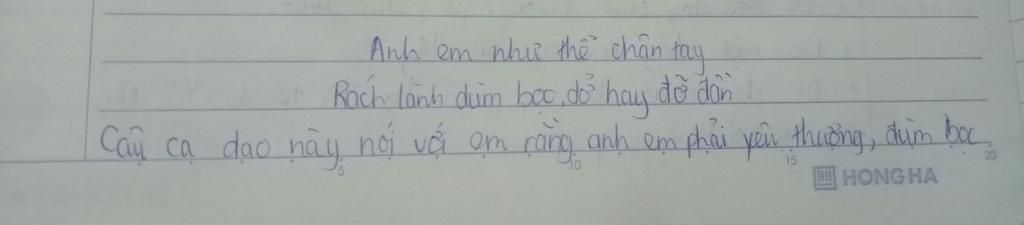 Anh em như thể chân tay
Rách lành đùm bọc, dở hay đỡ đần
Câu ca dao này nói với em rằng anh em phải yêu thương, đùm bọc
5 10 15 20
HONG HA